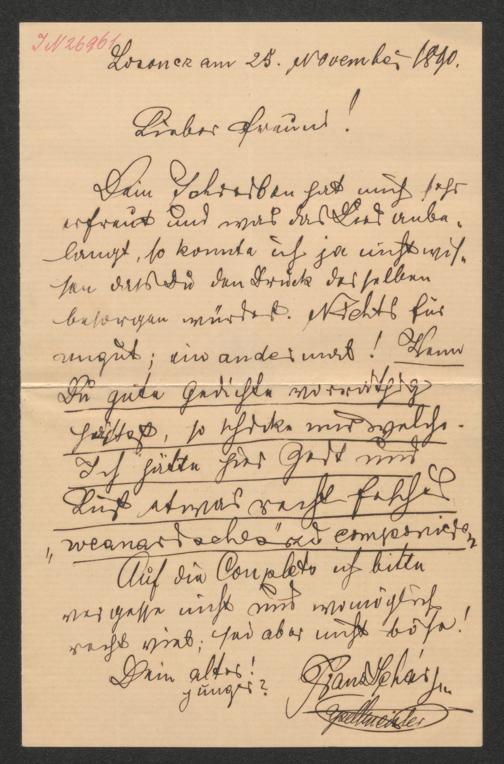 IN 26961
Losoncz am 25. November 1890.
Lieber Freund!
Dein Schreiben hat mich sehr
erfreut und was das Lied anbe-
langt, so konnte ich ja nicht wis-
sen dass Du den Druck desselben
besorgen würdest. Nichts für
ungut; ein andermal! Wenn
Du gute Gedichte vorräthig
hättest, so schicke mir welche.
Ich hätte hier Zeit und
Lust etwas recht fesches
„weanarisches" zu componieren
Auf die Couplets ich bitte
vergesse nicht und womöglich
recht viel; sei aber nicht böse!
Dein alter!
junger?
Franz Lehár